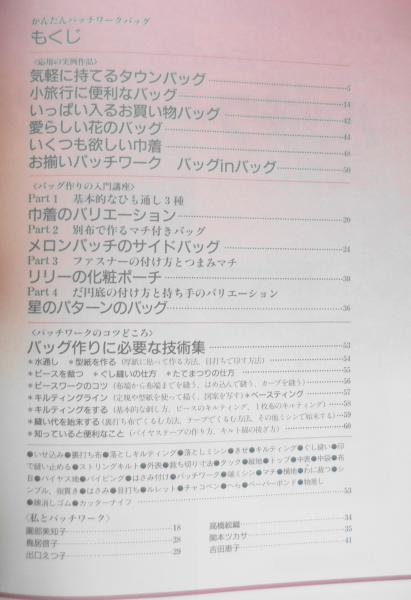 かんたんパッチワークバッグ
もくじ
〈応用の実例作品〉
気軽に持てるタウンバッグ 5
小旅行に便利なバッグ 14
いっぱい入るお買い物バッグ 42
愛らしい花のバッグ 44
いくつも欲しい巾着 48
お揃いパッチワーク バッグinバッグ 50
〈バッグ作りの入門講座〉
Part 1 基本的なひも通し3種
巾着のバリエーション 20
Part 2 別布で作るマチ付きバッグ
メロンパッチのサイドバッグ 24
Part 3 ファスナーの付け方とつまみマチ
リリーの化粧ポーチ 30
Part 4 だ円底の付け方と持ち手のバリエーション
星のパターンのバッグ 36
〈パッチワークのコツどころ〉
バッグ作りに必要な技術集 53
＊水通し ＊型紙を作る(厚紙に貼って作る方法、目打ちで印す方法) 54
＊ピースを裁つ ＊ぐし縫いの仕方 ＊たてまつりの仕方 55
＊ピースワークのコツ(布端から布端までを縫う、はめ込んで縫う、カーブを縫う) 56
＊キルティングライン(定規や型紙を使って描く、図案を写す)＊ベースティング 57
＊キルティングをする(基本的な刺し方、ピースのキルティング、1枚布のキルティング) 58
＊縫い代を始末する(裏打ち布でくるむ方法、テープでくるむ方法、その他ミシンで始末する) 59
＊知っていると便利なこと(バイヤステープの作り方、キルト綿の接ぎ方) 60
●いせ込み●裏打ち布●落としキルティング●落としミシン●きせ●キルティング●ぐし縫い●印
で縫い止める●ストリングキルト●外表●裁ち切り寸法●タック●縦地●トップ●中表●中袋●布
目●バイヤス地●パイピング●はさみ付け●パッチワーク●端ミシン●マチ●横地●わに裁つ●シ
ンブル、指貫き●はさみ●目打ち●ルレット●チャコペン●へら●ペーパーボンド●物差し
●線消しゴム●カッターナイフ 53
〈私とパッチワーク〉
園部美知子 18
鳥居啓子 28
出口えつ子 29
高橋絵織 34
関本ツカサ 35
吉田恵子 41